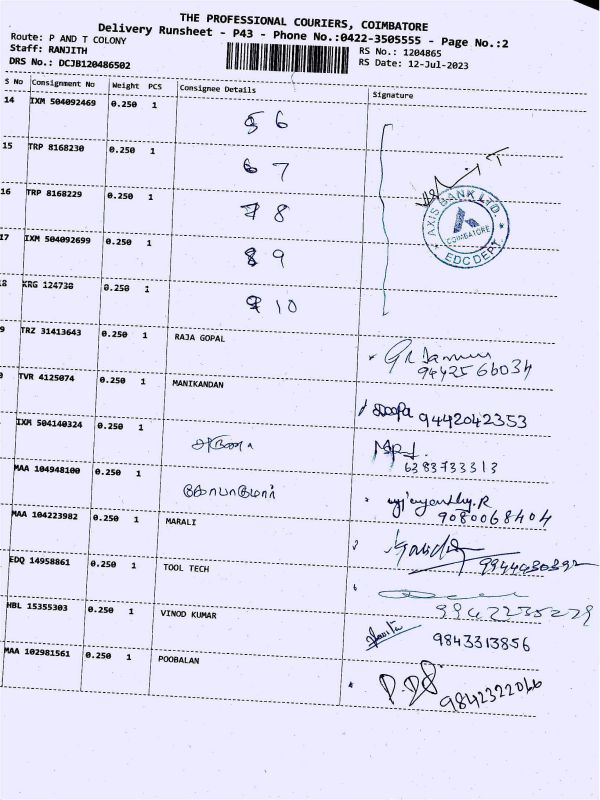 THE PROFESSIONAL COURIERS, COIMBATORE
Delivery Runsheet - P43 - Phone No.:0422-3505555 - Page No.:2
Route: P AND T COLONY
Staff: RANJITH
RS No.: 1204865
DRS No.: DCJB120486502
RS Date: 12-Jul-2023
S No Consignment No Weight PCS Consignee Details Signature
14 IXM 504092469 0.250 1 6
15 TRP 8168230 0.250 1 7
16 TRP 8168229 0.250 1 8
AXIS BANK LTD.
COIMBATORE
EDC DEPT.
17 IXM 504092699 0.250 1 9
18 KRG 124730 0.250 1 10
9 TRZ 31413643 0.250 1 RAJA GOPAL
9442566034
TVR 4125074 0.250 1 MANIKANDAN
9442042353
IXM 504140324 0.250 1
6383733313
MAA 104948100 0.250 1
9080068404
MAA 104223982 0.250 1 MARALI
9944430392
EDQ 14958861 0.250 1 TOOL TECH
HBL 15355303 0.250 1 VINOD KUMAR
9843313856
MAA 102981561 0.250 1 POOBALAN
9842322066